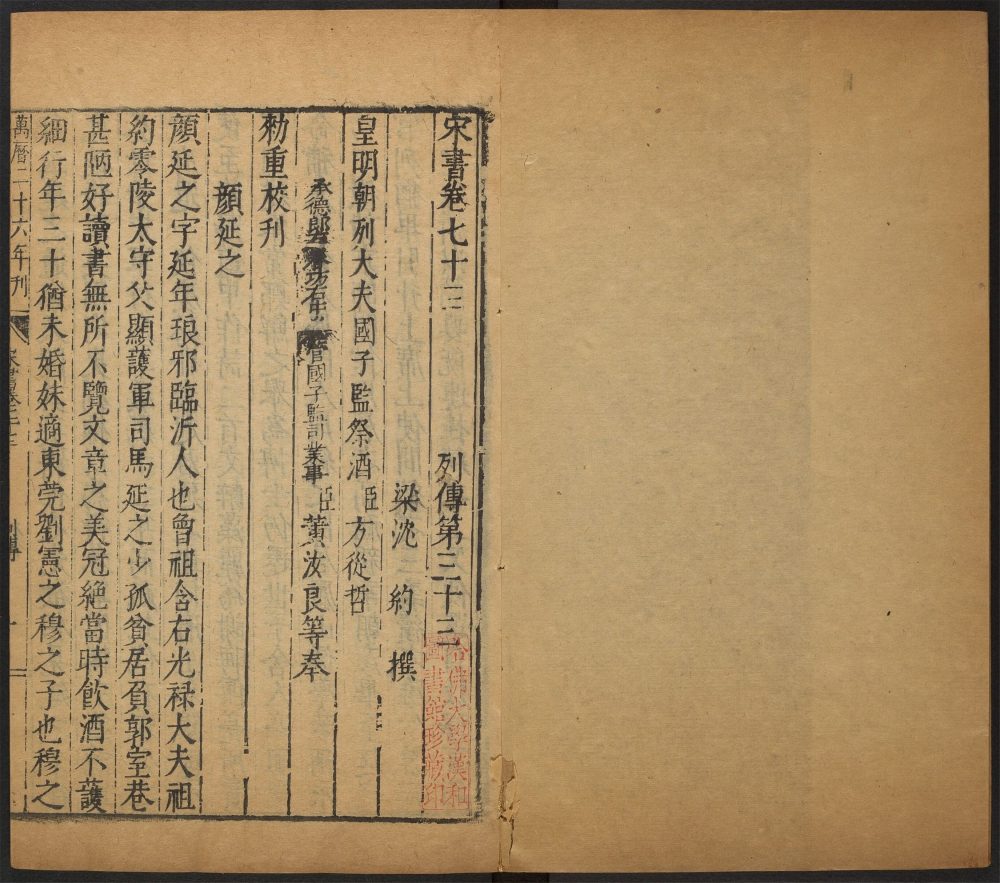 宋書卷七十三　列傳第三十三
梁沈　約　撰
皇明朝列大夫國子監祭酒臣方從哲
承德郎右春坊右中允管國子監司業事臣黃汝良等奉
勑重校刊
顔延之
顔延之字延年琅邪臨沂人也曾祖含右光禄大夫祖
約零陵太守父顯護軍司馬延之少孤貧居負郭室巷
甚陋好讀書無所不覽文章之美冠絶當時飲酒不護
細行年三十猶未婚妹適東莞劉憲之穆之子也穆之
萬曆二十六年刊
宋書卷七十三
列傳
一
哈佛大學漢和
圖書館珍藏印